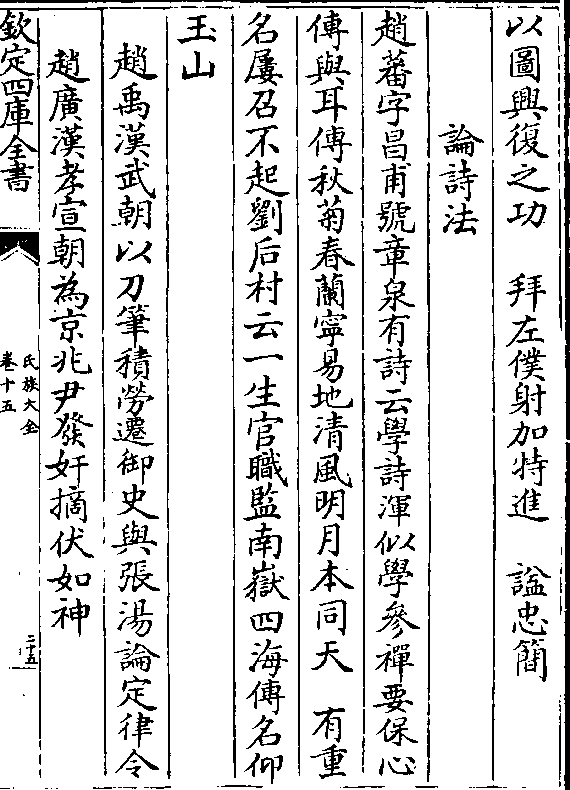 以圖興復之功　拜左僕射加特進　諡忠簡
論詩法
趙蕃字昌甫號章泉有詩云學詩渾似學參禪要保心
傳與耳傳秋菊春蘭寧易地清風明月本同天　有重
名屢召不起劉后村云一生官職監南嶽四海傳名仰
玉山
趙禹漢武朝以刀筆積勞遷御史與張湯論定律令
趙廣漢孝宣朝為京兆尹發奸摘伏如神
欽定四庫全書
氏族大全
卷十五
二十五